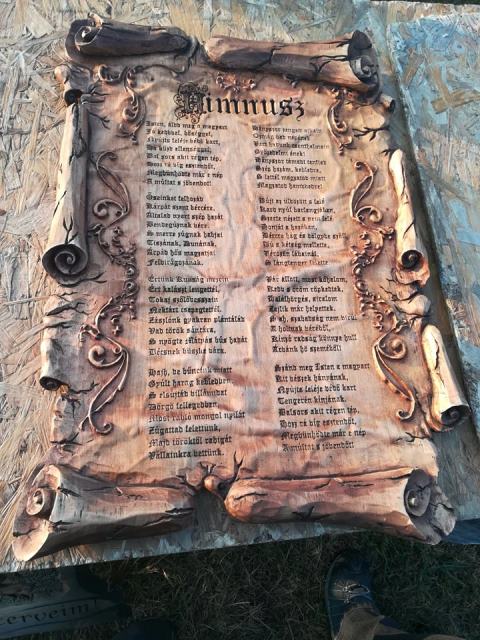 Himnusz
Isten, áldd meg a magyart
Jó kedvvel, bőséggel,
Nyujts feléje védő kart,
Ha küzd ellenséggel;
Bal sors akit régen tép,
Hozz rá víg esztendőt,
Megbünhödte már e nép
A multat s jövendőt!
Őseinket felhozád
Kárpát szent bércére,
Általad nyert szép hazát
Bendegúznak vére.
S merre zúgnak habjai
Tiszának, Dunának,
Árpád hős magzatjai
Felvirágozának.
Értünk Kunság mezein
Ért kalászt lengettél,
Tokaj szőlővesszein
Nektárt csepegtettél.
Zászlónk gyakran plántálád
Vad török sáncára,
S nyögte Mátyás bús hadát
Bécsnek büszke vára.
Hajh, de bűneink miatt
Gyúlt harag kebledben,
S elsujtád villámidat
Dörgő fellegedben,
Most rabló mongol nyilát
Zúgattad felettünk,
Majd töröktől rabigát
Vállainkra vettünk.
Hányszor zengett ajkain
Ozmán vad népének
Vert hadunk csonthalmain
Győzedelmi ének!
Hányszor támadt tenfiad
Szép hazám, kebledre,
S lettél magzatod miatt
Magzatod hamvvedre!
Bújt az üldözött s felé
Kard nyúl barlangjában,
Szerte nézett s nem lelé
Honját a hazában,
Bércre hág és völgybe száll,
Bú s kétség mellette,
Vérözön lábainál,
S lángtenger fölette.
Vár állott, most kőhalom,
Kedv s öröm röpkedtek,
Halálhörgés, siralom
Zajlik már helyettek.
S ah, szabadság nem virúl
A holtnak véréből,
Kínzó rabság könnye hull
Árvánk hő szeméből!
Szánd meg Isten a magyart
Kit vészek hányának,
Nyujts feléje védő kart
Tengerén kínjának.
Balsors akit régen tép,
Hozz rá víg esztendőt,
Megbünhödte már e nép
A multat s jövendőt!